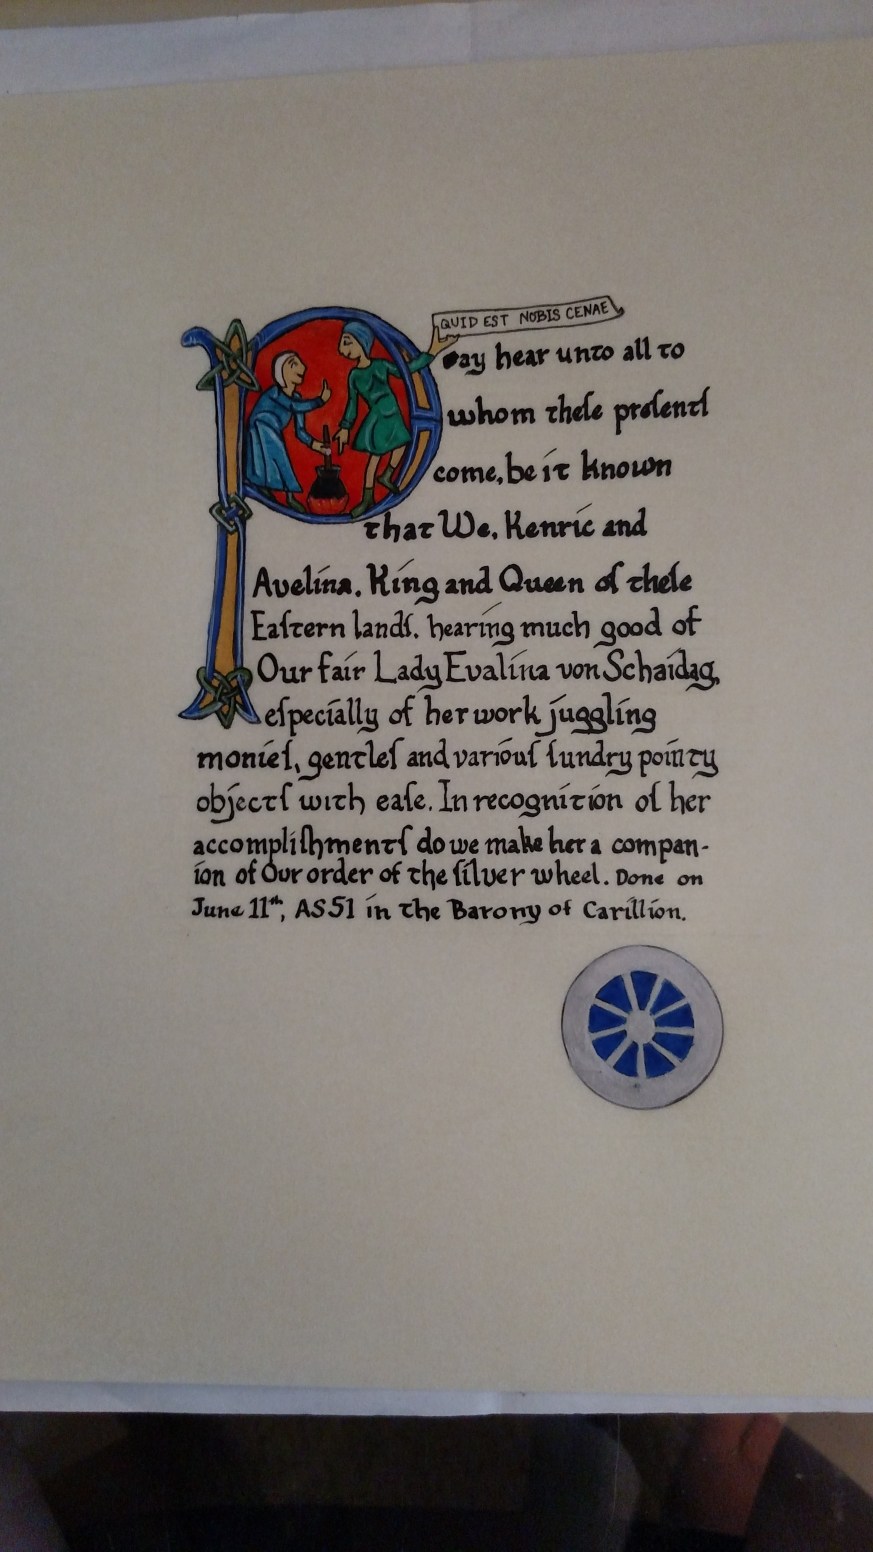 QUID EST NOBIS CENAE
Pay hear unto all to
whom theſe preſentſ
come, be it known
that We, Kenric and
Avelina, King and Queen of theſe
Eaſtern landſ, hearing much good of
Our fair Lady Evalina von Schaidag,
eſpecially of her work juggling
monieſ, gentleſ and variouſ ſundry pointy
objectſ with eaſe. In recognition of her
accompliſhmentſ do we make her a compan-
ion of Our order of the ſilver wheel. Done on
June 11th, AS51 in the Barony of Carillion.